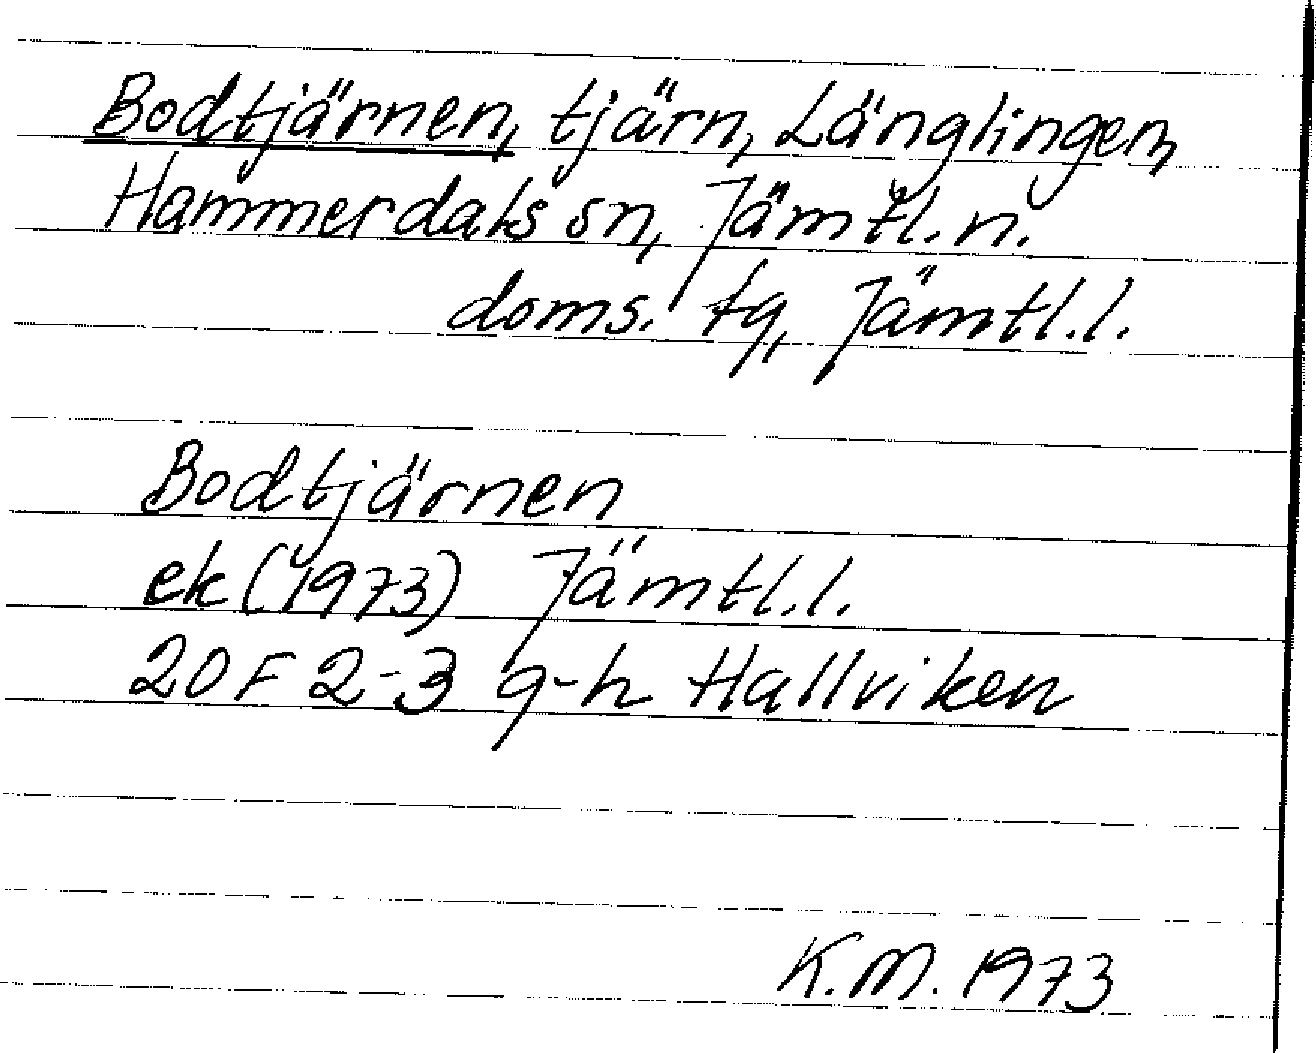 Bodtjärnen, tjärn, Länglingen,
Hammerdals sn, Jämtl. n.
doms. tg, Jämtl. l.
Bodtjärnen
ek (1973) Jämtl. l.
20 F 2-3 g-h Hallviken
K.M. 1973